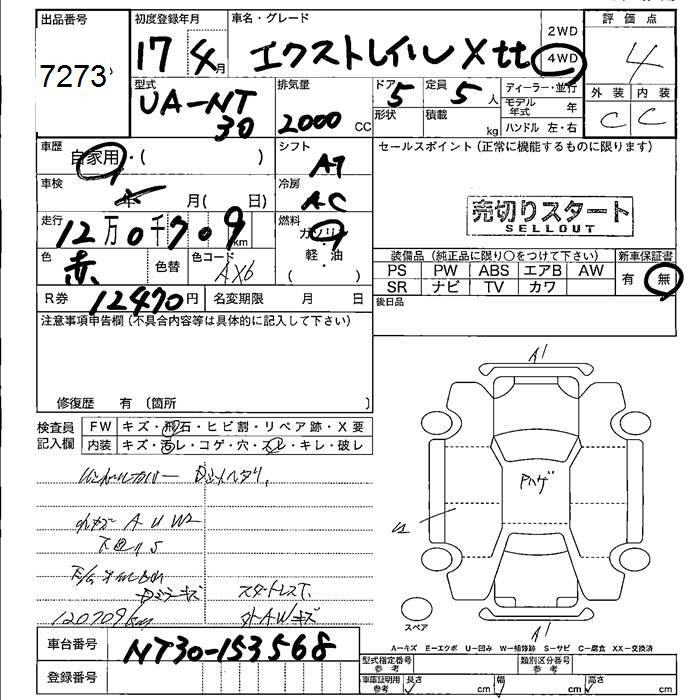 出品番号 初度登録年月 車名・グレード 2WD 評価点
7273 17年4月 エクストレイル Xtt 4WD 4
型式 排気量 ドア 定員 ディーラー・並行 外装 内装
UA-NT30 2000 CC 5 5 人 モデル年式 年 C C
形状 積載 kg ハンドル 左・右
車歴 シフト セールスポイント (正常に機能するものに限ります)
自家用・( ) AT
車検 年 月( 日) 冷房 AC
売切りスタート
SELLOUT
走行 12万0千709km 燃料 ガソリン
軽・油
( )
色 赤 色替 色コード AX6
装備品 (純正品に限り○をつけて下さい) 新車保証書
PS PW ABS エアB AW 有 無
SR ナビ TV カワ
R券 12470円 名変期限 月 日 後日品
注意事項申告欄 (不具合内容等は具体的に記入して下さい)
修復歴 有 (箇所 )
検査員記入欄 FW キズ・飛石・ヒビ割・リペア跡・X要
内装 キズ・汚レ・コゲ・穴・スレ・キレ・破レ
A1
Pハゲ
A U W2
120709km
外AWキズ
スペア
A1
A-キズ E-エクボ U-凹み W-補修跡 S-サビ C-腐食 XX-交換済
車台番号 NT30-153568
型式指定番号 参考 類別区分番号 参考
登録番号 車庫証明用 参考 長さ cm 幅 cm 高さ cm